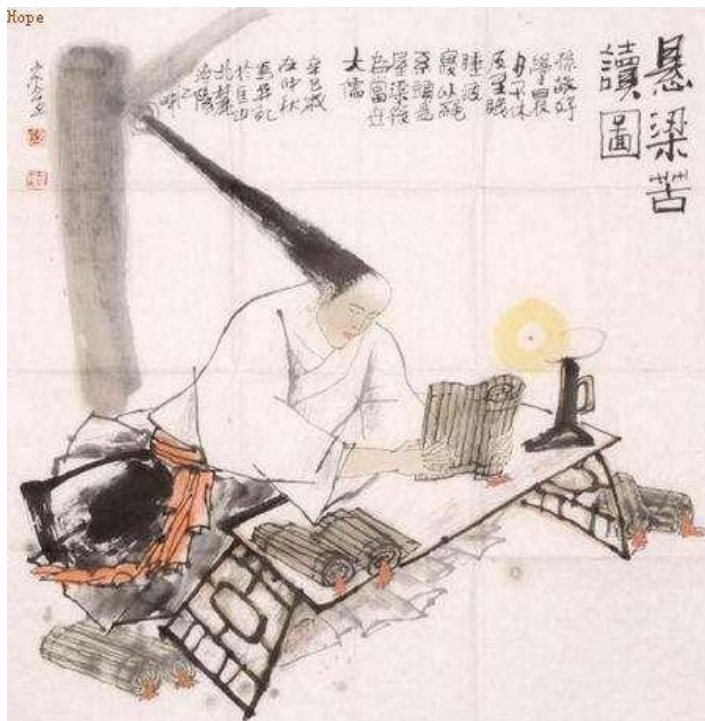 Hope
悬梁苦
讀圖
孫敬好
學晨
夕不休
及至眠
睡疲
寢以繩
系頭悬
屋梁後
為當世
大儒
辛巳歲
在仲秋
於山
北麓